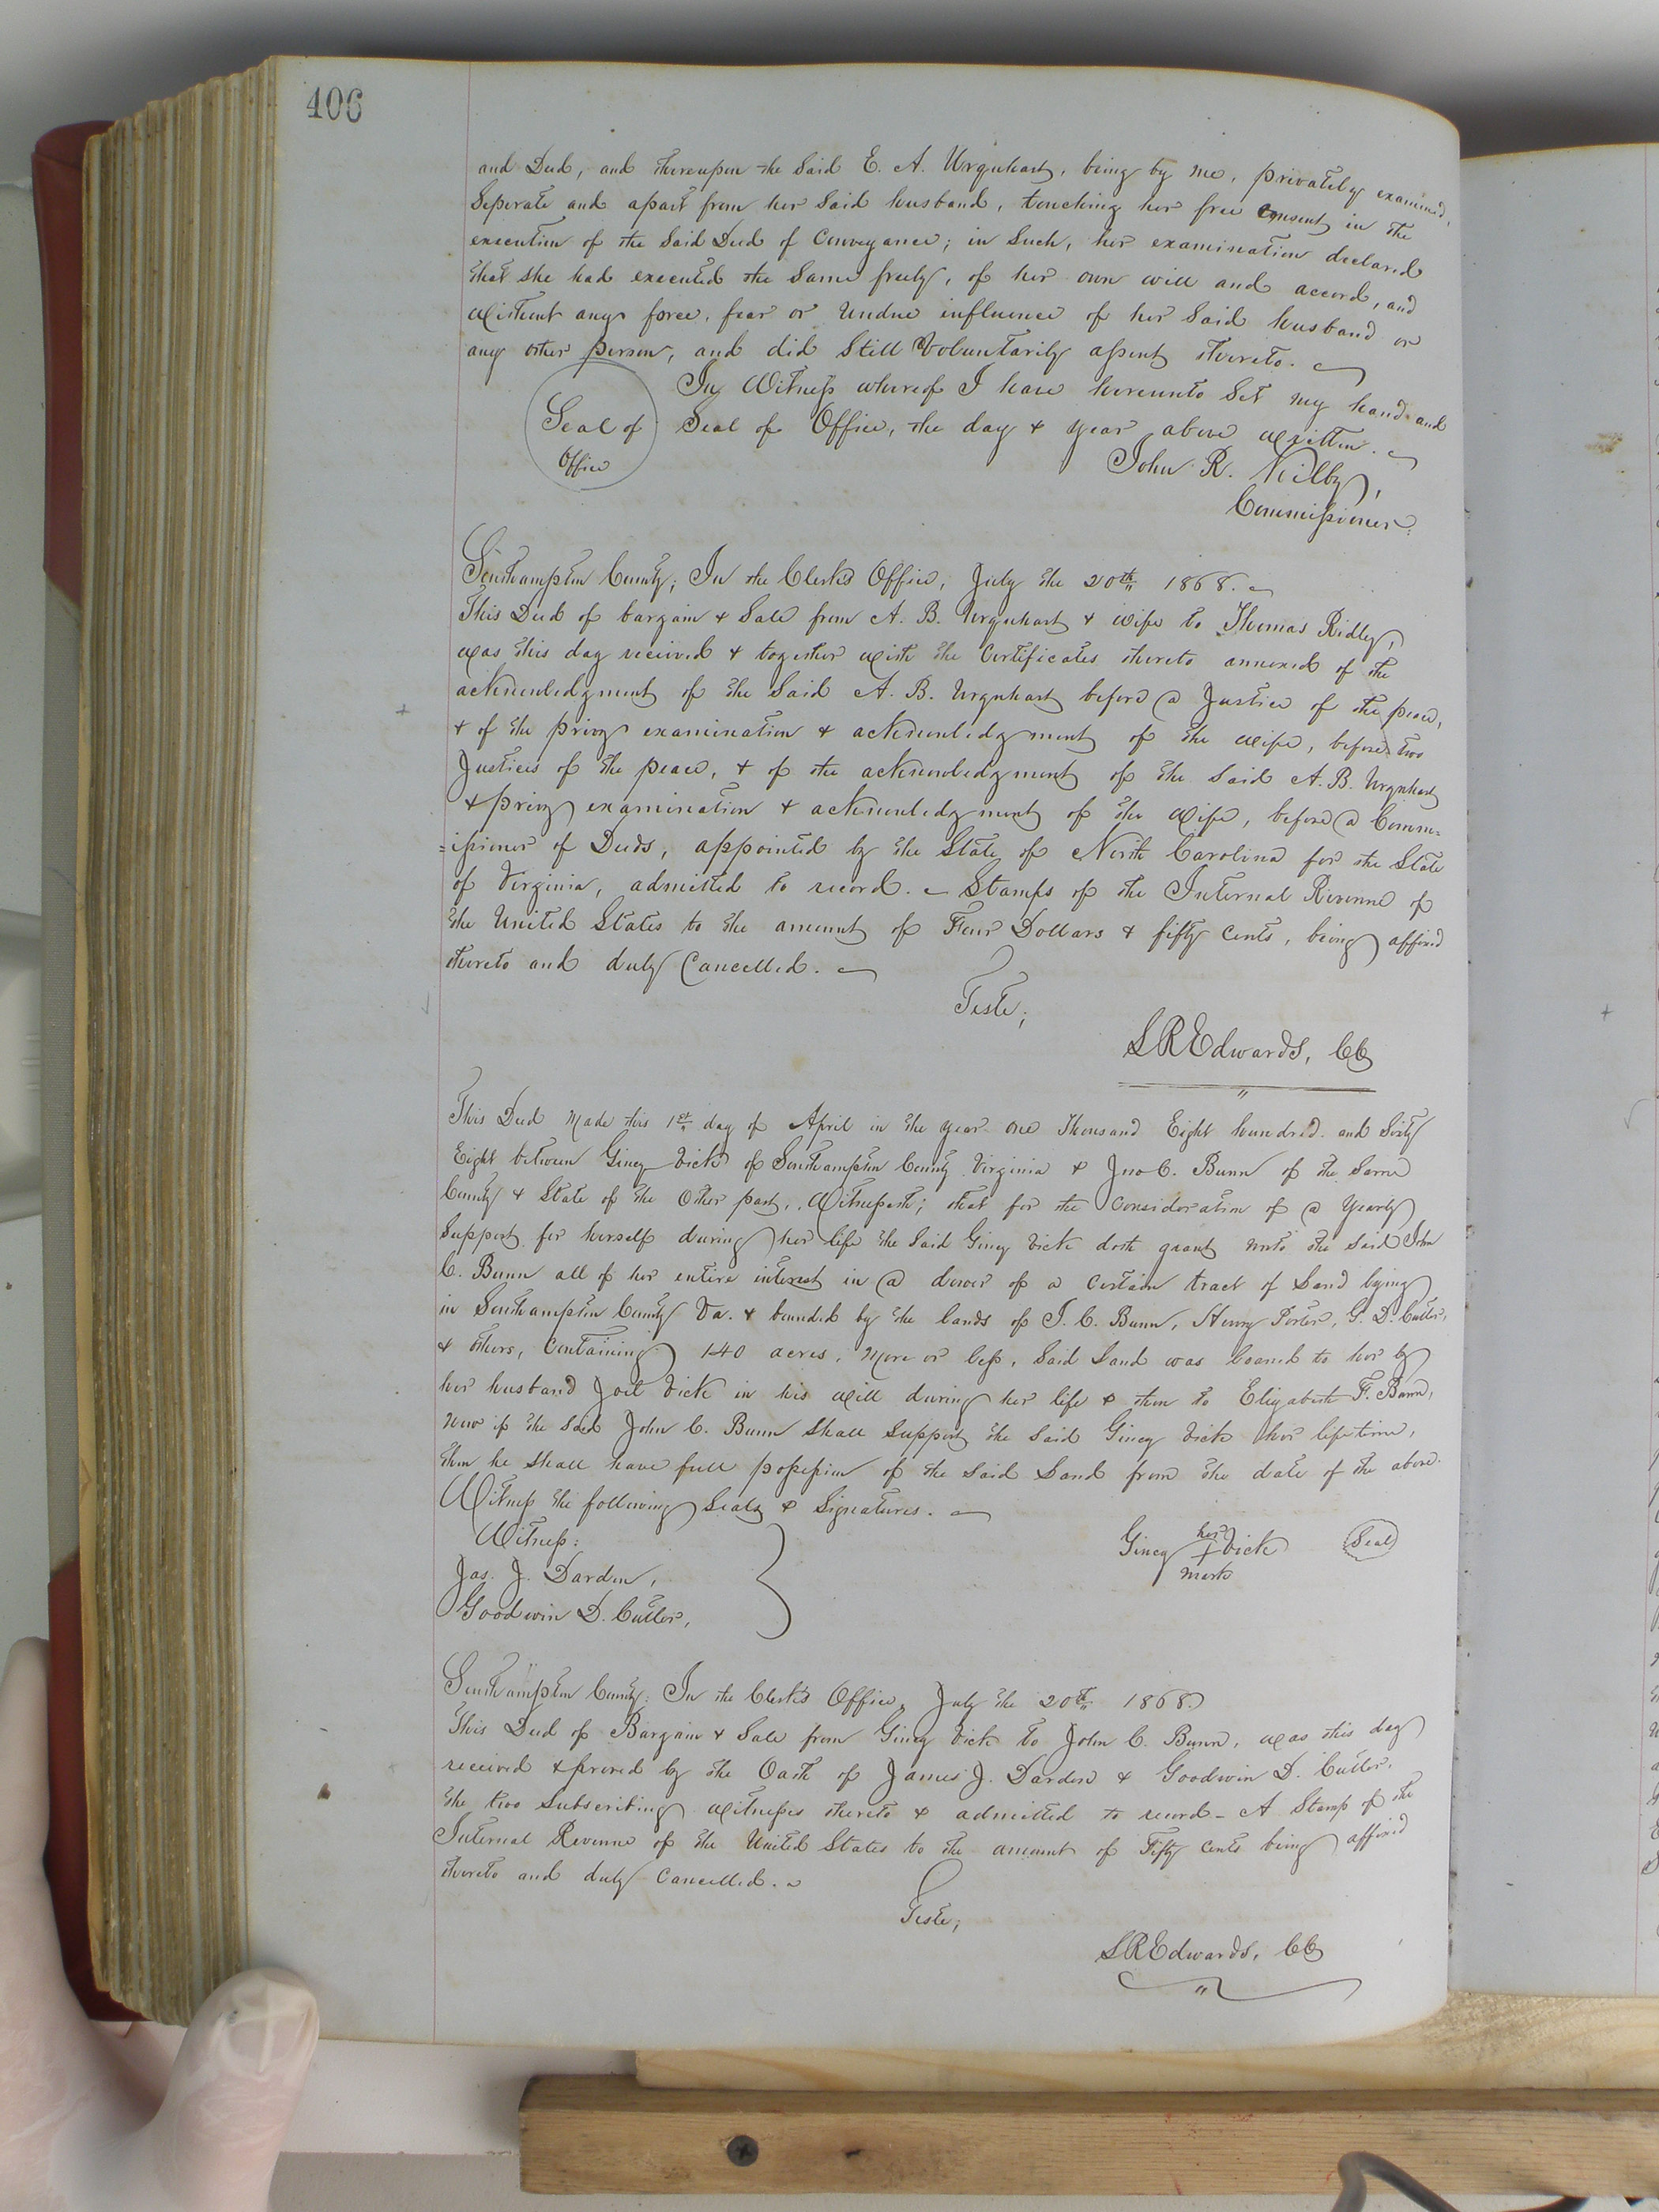 406
and Deed, and thereupon the Said E. A. Urquhart, being by me, privately examined,
Seperate and apart from her Said husband, touching her free Consent in the
execution of the Said Deed of Conveyance; in Such, her examination declared
that she had executed the Same freely, of her own will and accord, and
Without any force, fear or Undue influence of her Said husband or
any other person, and did Still Voluntarily assent thereto.
In Witness whereof I have hereunto Set my hand and
Seal of Office, the day & year above written.
Seal of
Office
John R. Kilby,
Commissioner.
Southampton County; In the Clerk's Office, July the 20th 1868.
This Deed of bargain & Sale from A. B. Urquhart & wife to Thomas Ridley,
was this day received & together with the Certificates thereto annexed of the
acknowledgment of the Said A. B. Urquhart before a Justice of the peace,
& of the privy examination & acknowledgment of the wife, before two
Justices of the peace, & of the acknowledgment of the Said A. B. Urquhart
& privy examination & acknowledgment of the Wife, before a Comm=
=issioner of Deeds, appointed by the State of North Carolina for the State
of Virginia, admitted to record. Stamps of the Internal Revenue of
the United States to the amount of Four Dollars & fifty Cents, being affixed
thereto and duly Cancelled.
Teste;
L R Edwards, CC
This Deed Made this 1st day of April in the year one Thousand Eight hundred and Sixty
Eight between Giney Vick of Southampton County Virginia & Jno C. Bunn of the Same
County & State of the Other part, Witnesseth; that for the Consideration of a Yearly
Support for herself during her life the Said Giney Vick doth grant unto the said John
C. Bunn all of her entire interest in a dower of a Certain tract of Land lying
in Southampton County Va. & bounded by the lands of J. C. Bunn, Henry Porter, G. D. Cutler,
& others, Containing 140 acres, More or less, Said Land was loaned to her by
her husband Joel Vick in his Will during her life & then to Elizabeth F. Bunn,
Now if the said John C. Bunn Shall Support the Said Giney Vick her lifetime,
then he Shall have full possession of the Said Land from the date of the above.
Witness the following Seals & Signatures.
Witness:
Jas. J. Darden,
Goodwin D. Cutler,
her
Giney + Vick Seal
mark
Southampton County: In the Clerk's Office, July the 20th 1868.
This Deed of Bargain & Sale from Giney Vick to John C. Bunn, was this day
received & proved by the Oath of James J. Darden & Goodwin D. Cutler,
the two Subscribing witnesses thereto & admitted to record - A Stamp of the
Internal Revenue of the United States to the amount of Fifty Cents being affixed
thereto and duly Cancelled.
Teste;
L R Edwards, CC